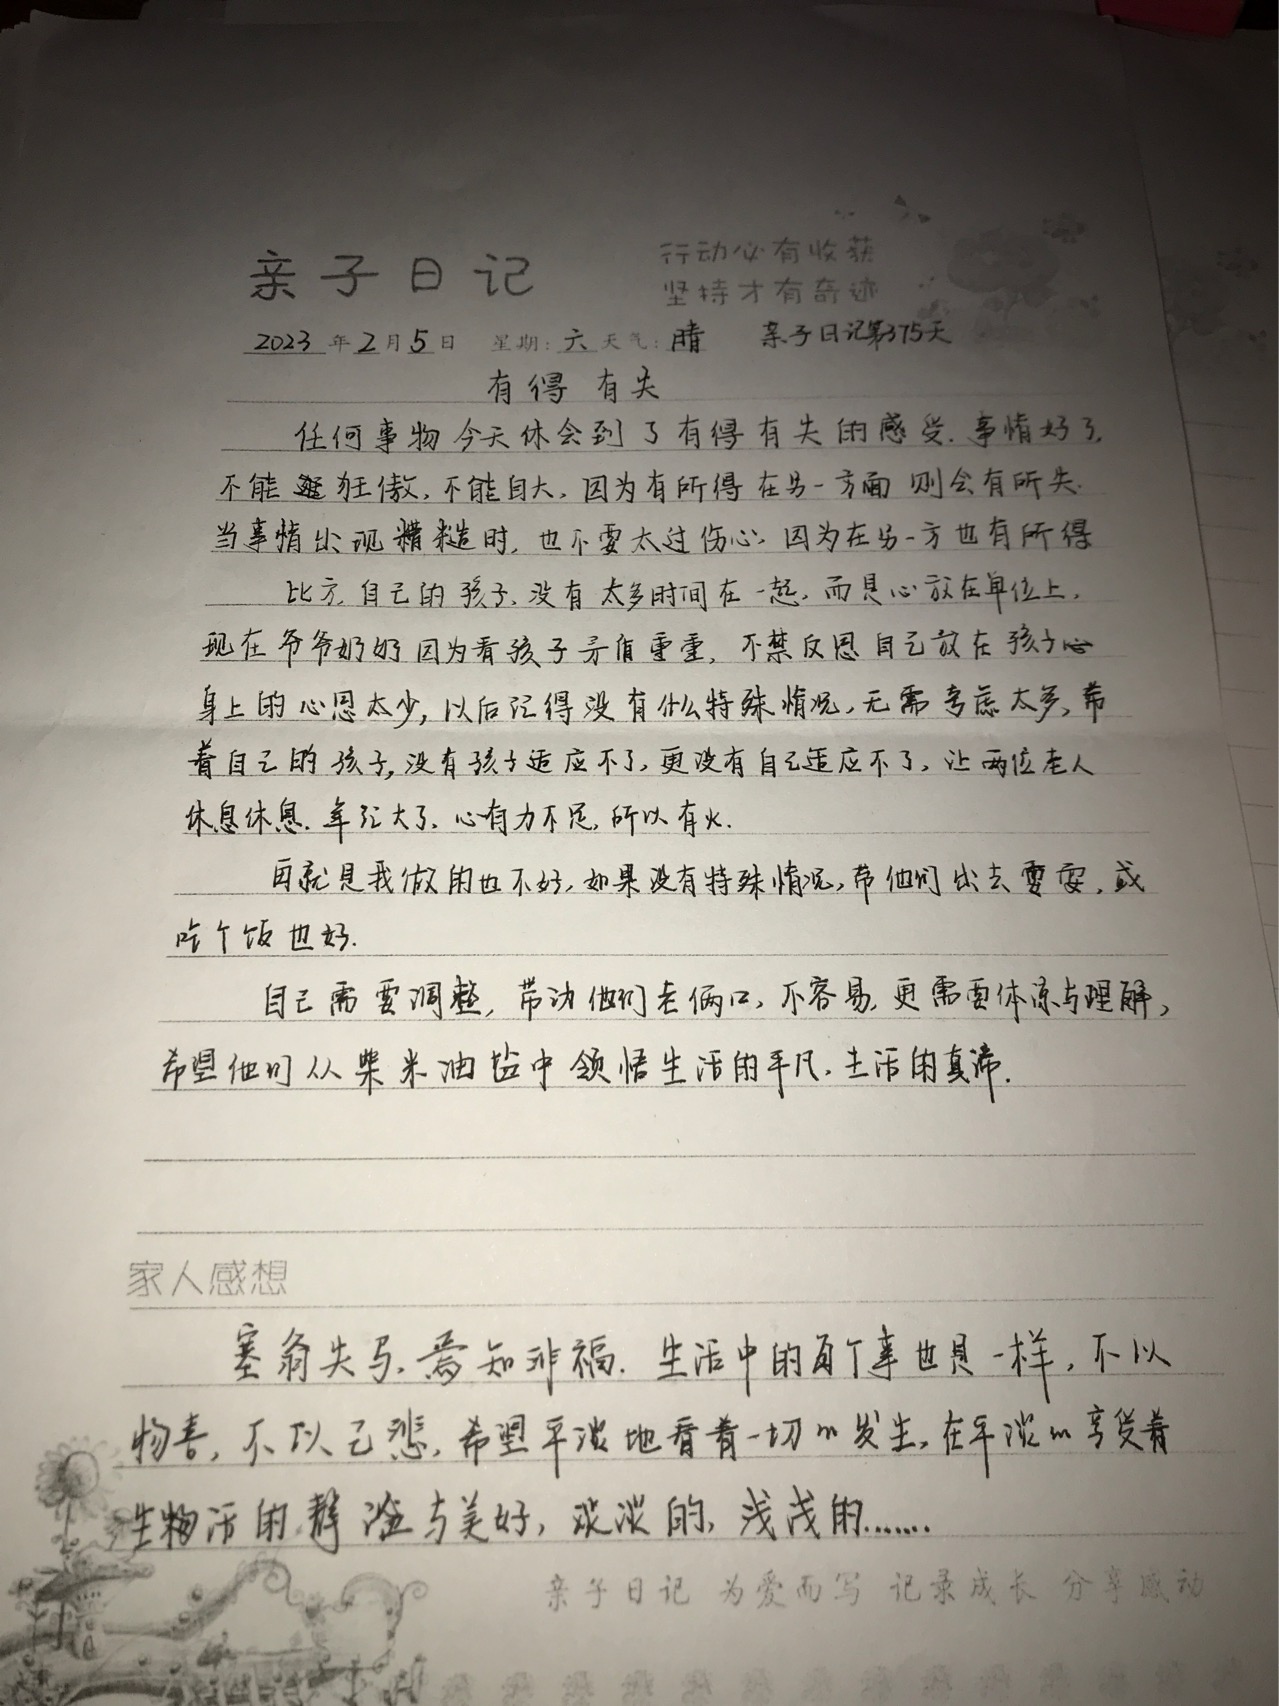 亲子日记
行动必有收获
坚持才有奇迹
2023年2月5日 星期:六 天气:晴 亲子日记第375天
有得 有失
任何事物今天体会到了有得有失的感受.事情好了,
不能狂傲,不能自大,因为有所得在另一方面则会有所失.
当事情出现糟糕时,也不要太过伤心,因为在另一方也有所得
比方,自己的孩子,没有太多时间在一起,而是心放在单位上,
现在爷爷奶奶因为看孩子矛盾重重,不禁反思自己放在孩子
身上的心思太少,以后记得没有什么特殊情况,无需考虑太多,带
着自己的孩子,没有孩子适应不了,更没有自己适应不了,让两位老人
休息休息.年纪大了,心有力不足,所以有火.
再就是我做的也不好,如果没有特殊情况,带他们出去耍耍,或
吃个饭也好.
自己需要调整,带动他们老俩口,不容易,更需要体谅与理解,
希望他们从柴米油盐中领悟生活的平凡,生活的真谛.
家人感想
塞翁失马,焉知非福.生活中的每个事也是一样,不以
物喜,不以己悲,希望平淡地看着一切的发生,在平淡的享受着
生活的静谧与美好,淡淡的,浅浅的.......
亲子日记 为爱而写 记录成长 分享感动